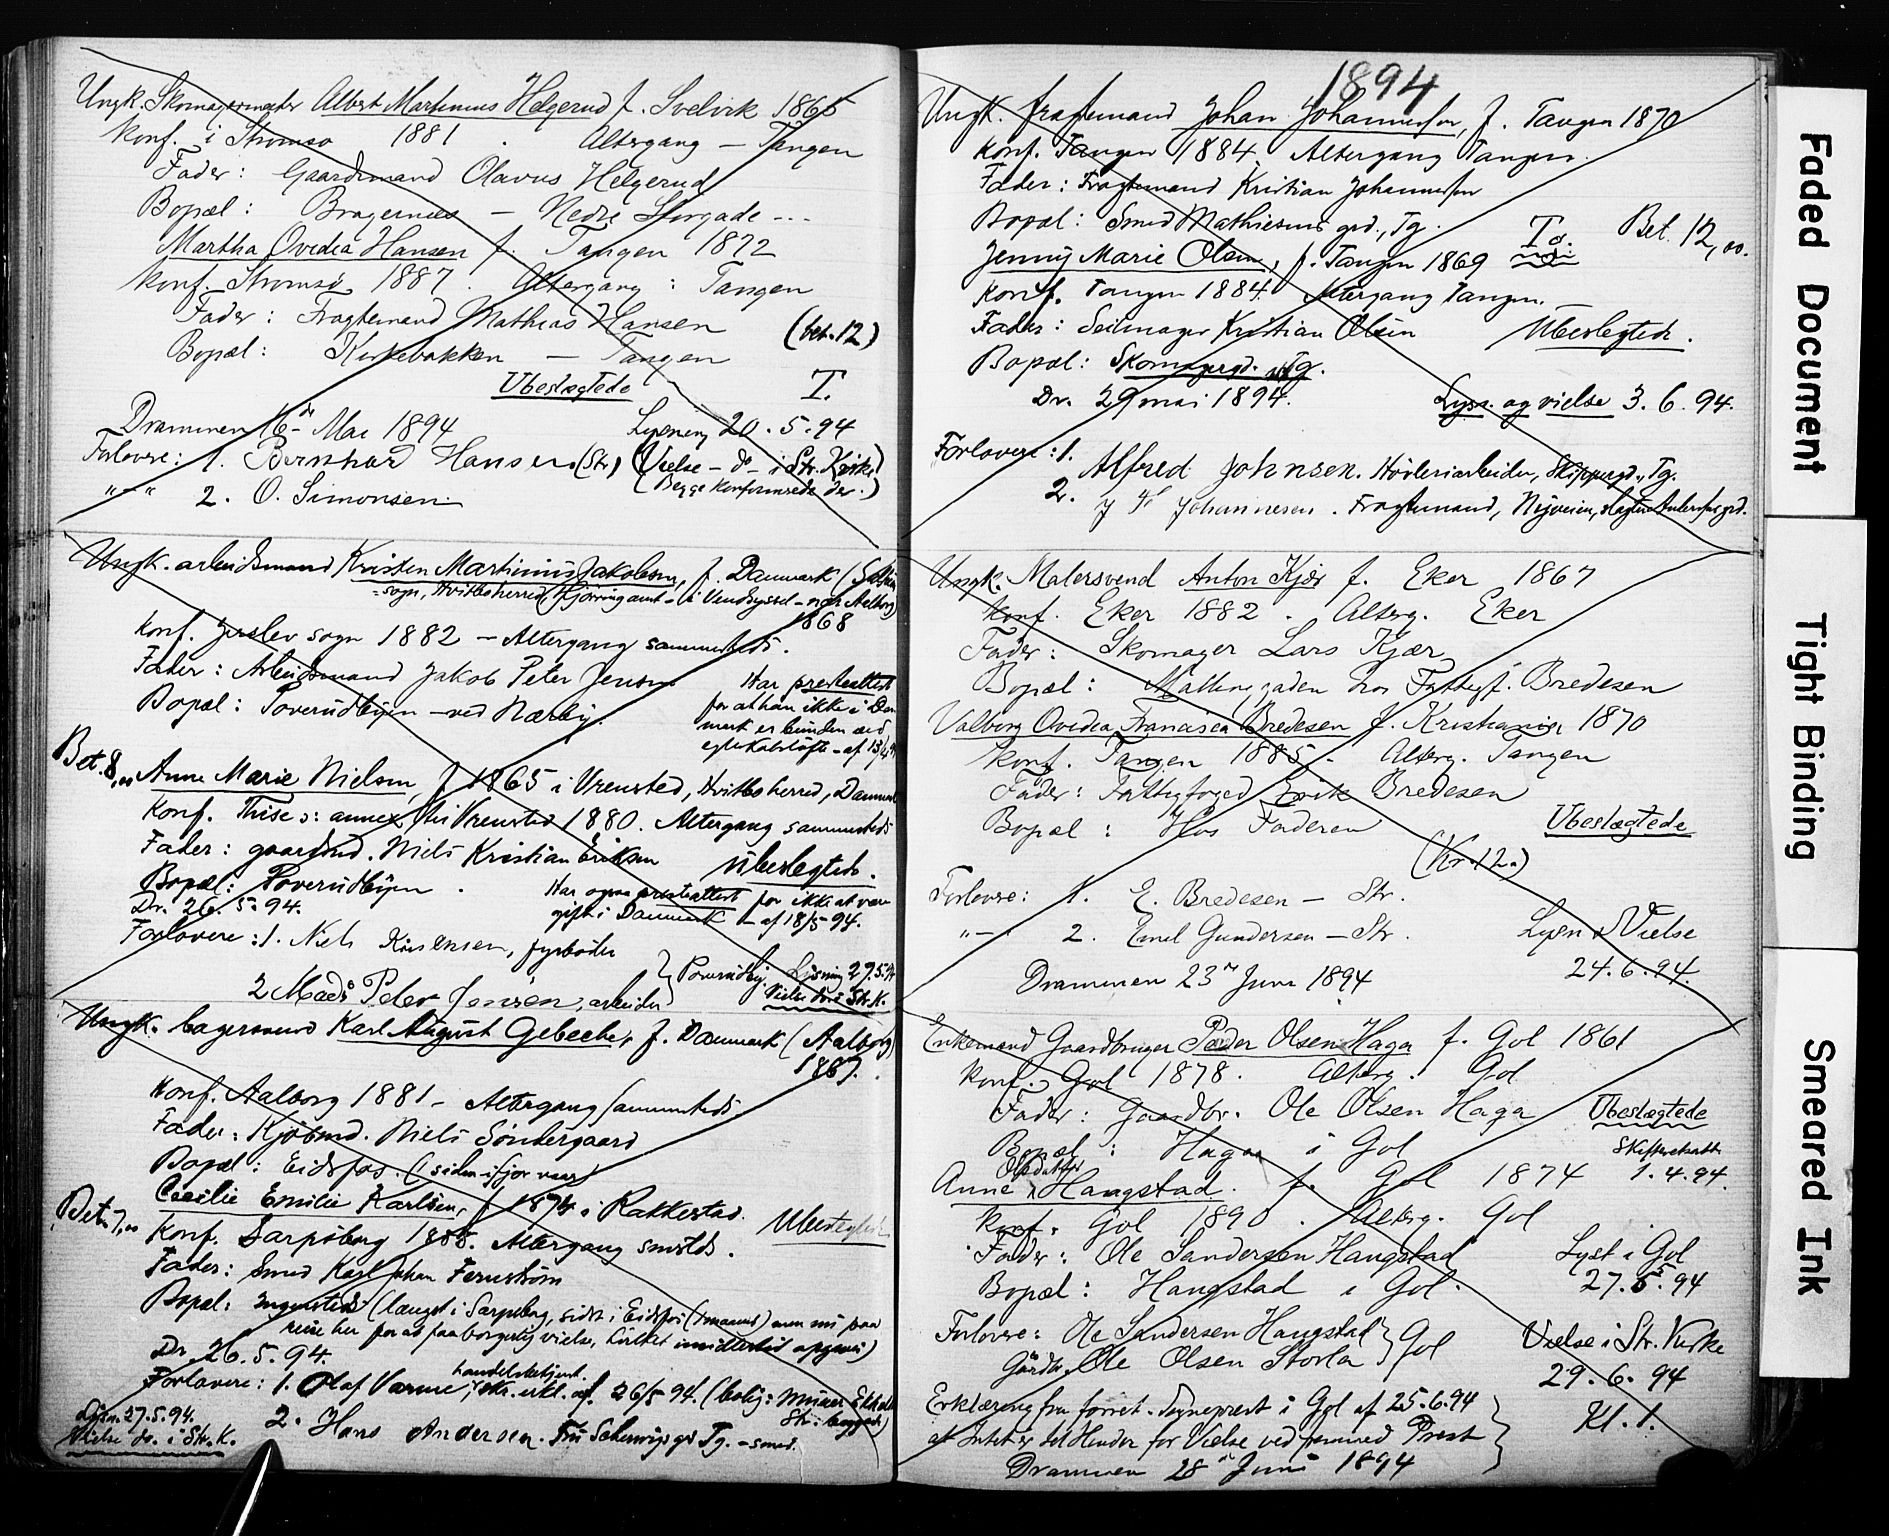 Ungk. Skomagermester Albert Martinius Helgerud f. Svelvik 1865
Konf. i Strømsø 1881. Altergang – Tangen
Fader: Gaardmand Olavus Helgerud
Bopæl: Bragernæs – Nedre Storgade ...
Martha Ovedia Hansen f. Tangen 1872
Konf. Strømsø 1887. Altergang: Tangen
Fader: Fragtemand Mathias Hansen (bet. 12)
Bopæl: Kirkebakken – Tangen
Ubeslægtede T.
Drammen 16de Mai 1894 Lysning 20.5.94
Forlovere: 1. Bernhard Hansen (Str) (Vielse – do – i Str. Kirke)
" — " 2. O. Simonsen. (Begge konfirmerede der.)
Ungk. arbeidsmand Kristen Martinius Jakobsen, f. Danmark
sogn, Hvitbo herred, Hjørring amt – i Vendsyssel – nær Aalborg)
1868
Konf. Jerslev sogn 1882 – Altergang sammesteds.
Fader: Arbeidsmand Jakob Peter Jensen
Har presteattest
Bopæl: Poverudbyen – ved Nærby.
for at han ikke i Dan
mark er bunden ved
egteskabsløfte – af
Bet. 8,00 Anne Marie Nielsen, f. 1865 i Vrensted, Hvitbo herred, Danmark
Konf. Thise ɔ: annex til Vrensted 1880. Altergang sammesteds
Fader: gaardmd. Niels Kristian Eriksen Ubeslegtede.
Bopæl: Poverudbyen.
Har ogsaa presteattest for ikke at være
Dr. 26.5.94. gift i Danmark – af 18/5 94.
Forlovere: 1. Niels Kristensen, fyrbøder
2 Mads Peter Jensen, arbeider } Poverudby. Lysning 27.5.94
Vielse do i Str. K.
Ungk. bagersvend Karl August Gebecke, f. Danmark (Aalborg)
1867.
Konf. Aalborg 1881 – Altergang sammesteds
Fader: Kjøbmd. Niels Søndergaard
Bopæl: Eidsfos. (siden ifjor vaar)
Cecilie Emilie Karlsen, f. 1874 i Rakkestad.
Bet. 7,00 Konf. Sarpsborg 1888. Altergang smstds. Ubeslegtede
Fader: Smed Karl Johan Fernström
Bopæl: Ingensteds (længst i Sarpsborg, sidst i Eidsfos
reise her for at faa borgerlig vielse, hvilket imidlertid opgives)
Dr. 26.5.94.
handelsbetjent.
Forlovere: 1. Olaf Varme, skr. erkl. af 26/5 94.
Lysn. 27.5.94.
Vielse do. i Str. K. 2. Hans Andersen. Fru Schwigs gd Tg. – smed.
1894
Ungk. fragtemand Johan Johannesen, f. Tangen 1870
Konf. Tangen 1884 Altergang Tangen.
Fader: Fragtemand Kristian Johannesen
Bopæl: Smed Mathiesens grd., Tg. To. Bet. 12,00.
Jenny Marie Olsen, f. Tangen 1869
Konf. Tangen 1884. Altergang Tangen. —
Fader: Seilmager Kristian Olsen Ubeslegtede.
Bopæl: Skomagergd. Tg.
Dr. 29 mai 1894. Lysn. og vielse 3.6.94.
Forlovere: 1. Alfred Johnsen. Høvleriarbeider, Skippergd., Tg.
2. Johannesen. Fragtemand, Nyveien, slagter Andersens grd.
Ungk. Malersvend Anton Kjær f. Eker 1867
Konf. Eker 1882. Alterg. Eker
Fader: Skomager Lars Kjær
Bopæl: Møllergaden hos Fattigf. Bredesen
Valborg Ovedia Francisca Bredesen f. Kristiania 1870
Konf. Tangen 1885. Alterg. Tangen
Fader: Fattigfoged Erik Bredesen
Bopæl: Hos Faderen Ubeslægtede
(Kr 12.)
Forlovere: 1. E. Bredesen – Str.
" — " 2. Emil Gundersen – Str. Lysn & Vielse
Drammen 23de Juni 1894 24.6.94.
Enkemand Gaardbruger Peder Olsen Haga f. Gol 1861
Konf. Gol 1878. Alterg. Gol
Fader: Gaardbr. Ole Olsen Haga Ubeslægtede
Bopæl: Haga i Gol Skifteretsatt
Olsdatter
Anne Haugstad. f. Gol 1874 1.4.94.
Konf. Gol 1890. Alterg. Gol
Fader: Ole Sandersen Haugstad Lyst i Gol
Bopæl: Haugstad i Gol. 27.5.94
Forlovere: Ole Sandersen Haugstad } Gol Vielse i Str. Kirke
Gårdbr. Ole Olsen Storla 29.6.94
Erklæring fra forret. Sogneprest i Gol af 25.6.94
at Intet er til Hinder for Vielse ved Prest Kl. 1.
Drammen 28de Juni 1894
Faded Document
Tight Binding
Smeared Ink